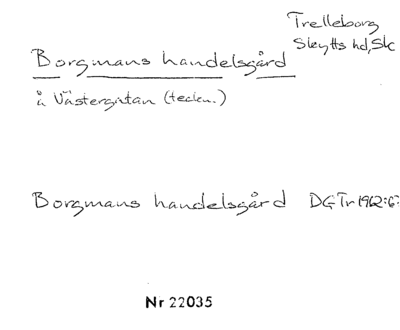 Trelleborg
Skytts hd, Sk
Borgmans handelsgård
å Västergatan (teckn.)
Borgmans handelsgård DGTr 1962:6
Nr 22035